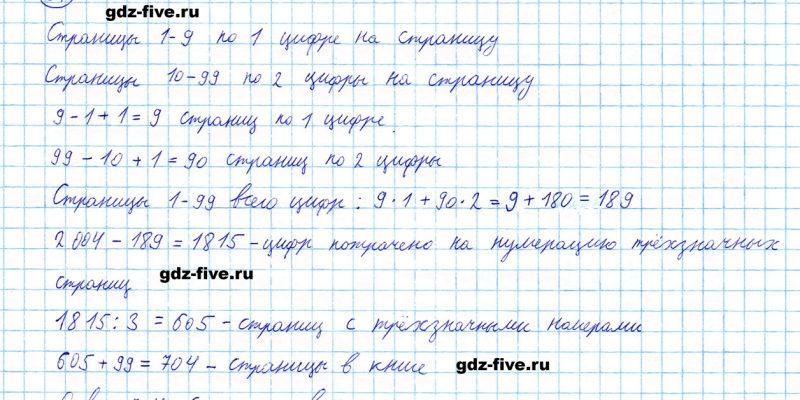 gdz-five.ru
Страницы 1-9 по 1 цифре на страницу
Страницы 10-99 по 2 цифры на страницу
9 - 1 + 1 = 9 страниц по 1 цифре
99 - 10 + 1 = 90 страниц по 2 цифры
Страницы 1-99 всего цифр: 9·1 + 90·2 = 9 + 180 = 189
2 004 - 189 = 1815 - цифр потрачено на нумерацию трёхзначных
страниц
gdz-five.ru
1815 : 3 = 605 - страниц с трёхзначными номерами
605 + 99 = 704 - страницы в книге
gdz-five.ru